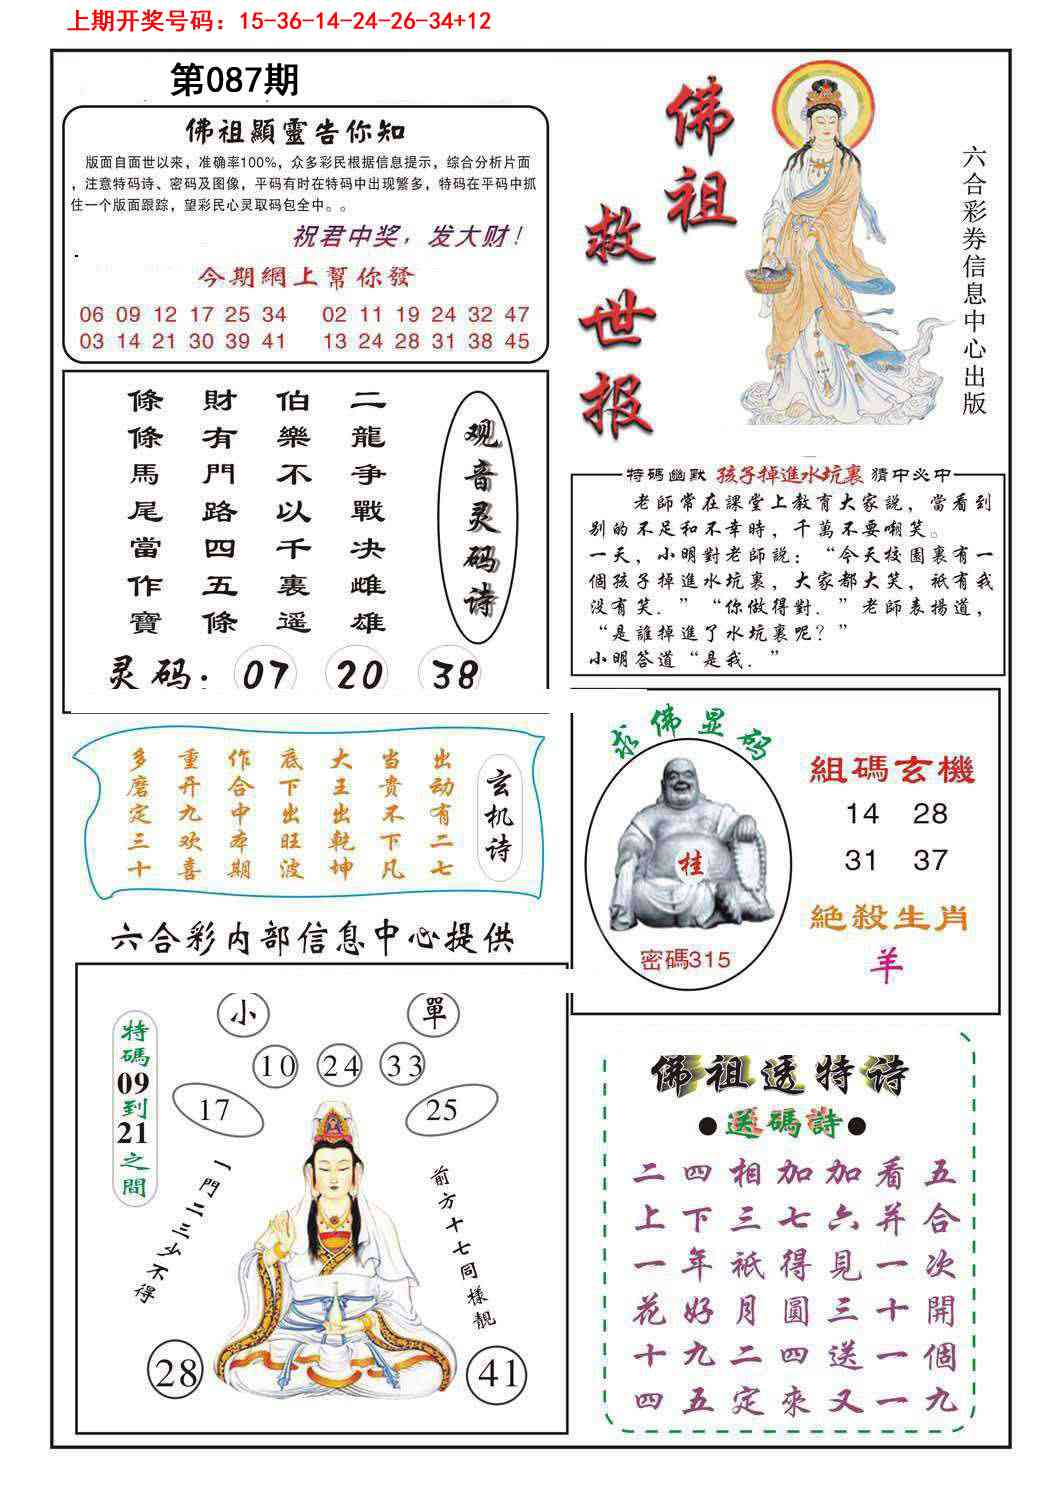 上期开奖号码：15-36-14-24-26-34+12
第087期
佛祖顯靈告你知
版面自面世以来，准确率100%，众多彩民根据信息提示，综合分析片面
，注意特码诗、密码及图像，平码有时在特码中出现繁多，特码在平码中抓
住一个版面跟踪，望彩民心灵取码包全中。。
祝君中奖，发大财！
今期網上幫你發
06 09 12 17 25 34 02 11 19 24 32 47
03 14 21 30 39 41 13 24 28 31 38 45
佛祖
救世报
六合彩券信息中心出版
观音灵码诗
二龍争戰决雌雄
伯樂不以千裏遥
財有門路四五條
條條馬尾當作寶
灵码：07 20 38
特碼幽默 孩子掉進水坑裏 猜中必中
老師常在課堂上教育大家説，當看到
别的不足和不幸時，千萬不要嘲笑。
一天，小明對老師説：“今天校園裏有一
個孩子掉進水坑裏，大家都大笑，祇有我
没有笑．”“你做得對．”老師表揚道，
“是誰掉進了水坑裏呢？”
小明答道“是我．”
玄机诗
出动有二七
当贵不下凡
大王出乾坤
底下出旺波
作合中本期
重开九欢喜
多磨定三十
求佛显码
桂
密碼315
組碼玄機
14 28
31 37
絕殺生肖
羊
六合彩内部信息中心提供
特碼09到21之間
小 單
10 24 33
17 25
一門二三少不得
前方十七同樣靚
28 41
佛祖透特诗
●送碼詩●
二四相加加看五
上下三七六并合
一年祇得見一次
花好月圓三十開
十九二四送一個
四五定來又一九